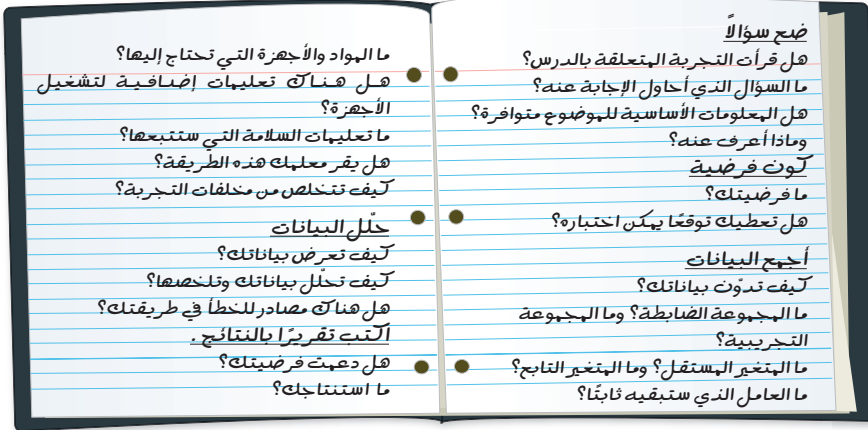 ضع سؤالاً
هل قرأت التجربة المتعلقة بالدرس؟
ما السؤال الذي أحاول الإجابة عنه؟
هل المعلومات الأساسية للموضوع متوافرة؟
وماذا أعرف عنه؟
كون فرضية
ما فرضيتك؟
هل تعطيك توقعًا يمكن اختباره؟
أجمع البيانات
كيف تدوّن بياناتك؟
ما المجموعة الضابطة؟ وما المجموعة
التجريبية؟
ما المتغير المستقل؟ وما المتغير التابع؟
ما العامل الذي ستبقيه ثابتًا؟
ما المواد والأجهزة التي تحتاج إليها؟
هل هناك تعليمات إضافية لتشغيل
الأجهزة؟
ما تعليمات السلامة التي ستتبعها؟
هل يقر معلمك هذه الطريقة؟
كيف تتخلص من مخلفات التجربة؟
حلّل البيانات
كيف تعرض بياناتك؟
كيف تحلّل بياناتك وتلخصها؟
هل هناك مصادر للخطأ في طريقتك؟
اكتب تقريرًا بالنتائج .
هل دعمت فرضيتك؟
ما استنتاجك؟